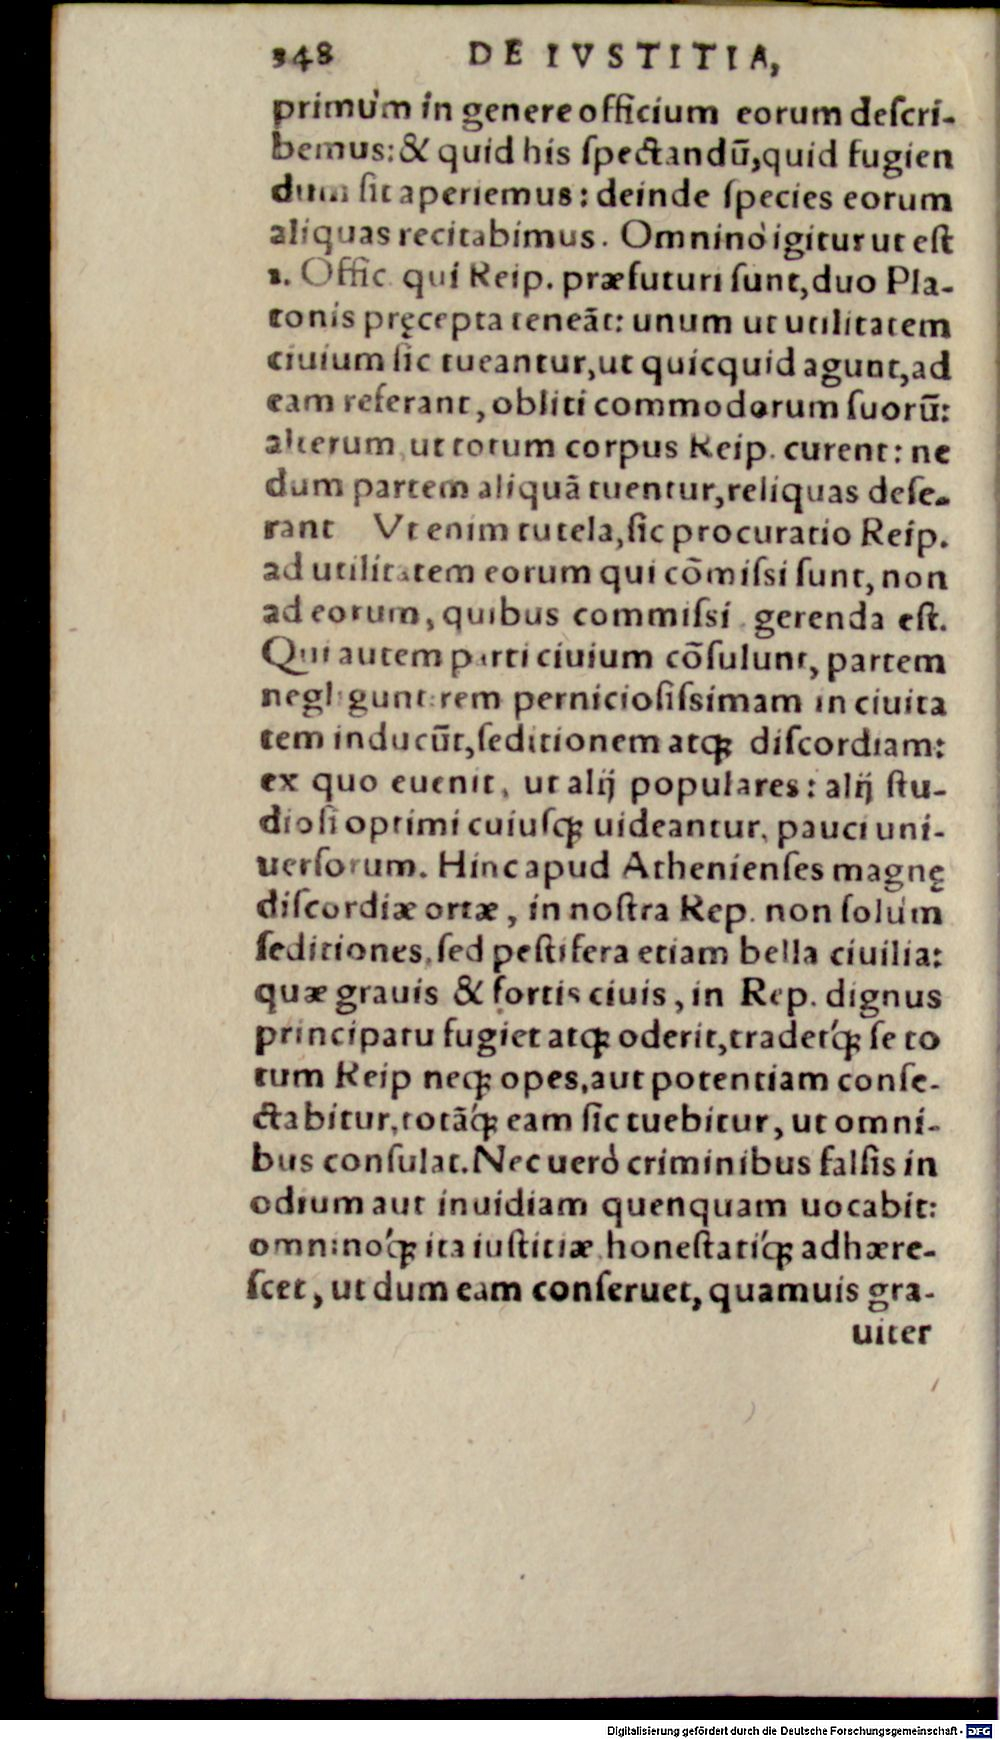 348 DE IVSTITIA,
primùm in genere officium eorum deſcri-
bemus: & quid his ſpectandũ, quid fugien
dum ſit aperiemus: deinde ſpecies eorum
aliquas recitabimus. Omninò igitur ut eſt
1. Offic. qui Reip. præfuturi ſunt, duo Pla-
tonis pręcepta teneãt: unum ut utilitatem
ciuium ſic tueantur, ut quicquid agunt, ad
eam referant, obliti commodorum ſuorũ:
alterum, ut totum corpus Reip. curent: ne
dum partem aliquã tuentur, reliquas deſe-
rant Vt enim tutela, ſic procuratio Reip.
ad utilitatem eorum qui cõmiſsi ſunt, non
ad eorum, quibus commiſsi gerenda eſt.
Qui autem parti ciuium cõſulunt, partem
negligunt: rem pernicioſiſsimam in ciuita
tem inducũt, ſeditionem atq́ꝫ diſcordiam:
ex quo euenit, ut alij populares: alij ſtu-
dioſi optimi cuiuſqꝫ uideantur, pauci uni-
uerſorum. Hinc apud Athenienſes magnę
diſcordiæ ortæ, in noſtra Rep. non ſolùm
ſeditiones, ſed peſtifera etiam bella ciuilia:
quæ grauis & fortis ciuis, in Rep. dignus
principatu fugiet atqꝫ oderit, tradetq́ꝫ ſe to
tum Reip neqꝫ opes, aut potentiam conſe-
ctabitur, totãq́ꝫ eam ſic tuebitur, ut omni-
bus conſulat. Nec uerò criminibus falſis in
odium aut inuidiam quenquam uocabit:
omninoq́ꝫ ita iuſtitiæ honeſtatiq́ꝫ adhære-
ſcet, ut dum eam conſeruet, quamuis gra-
uiter
Digitalisierung gefördert durch die Deutsche Forschungsgemeinschaft - DFG